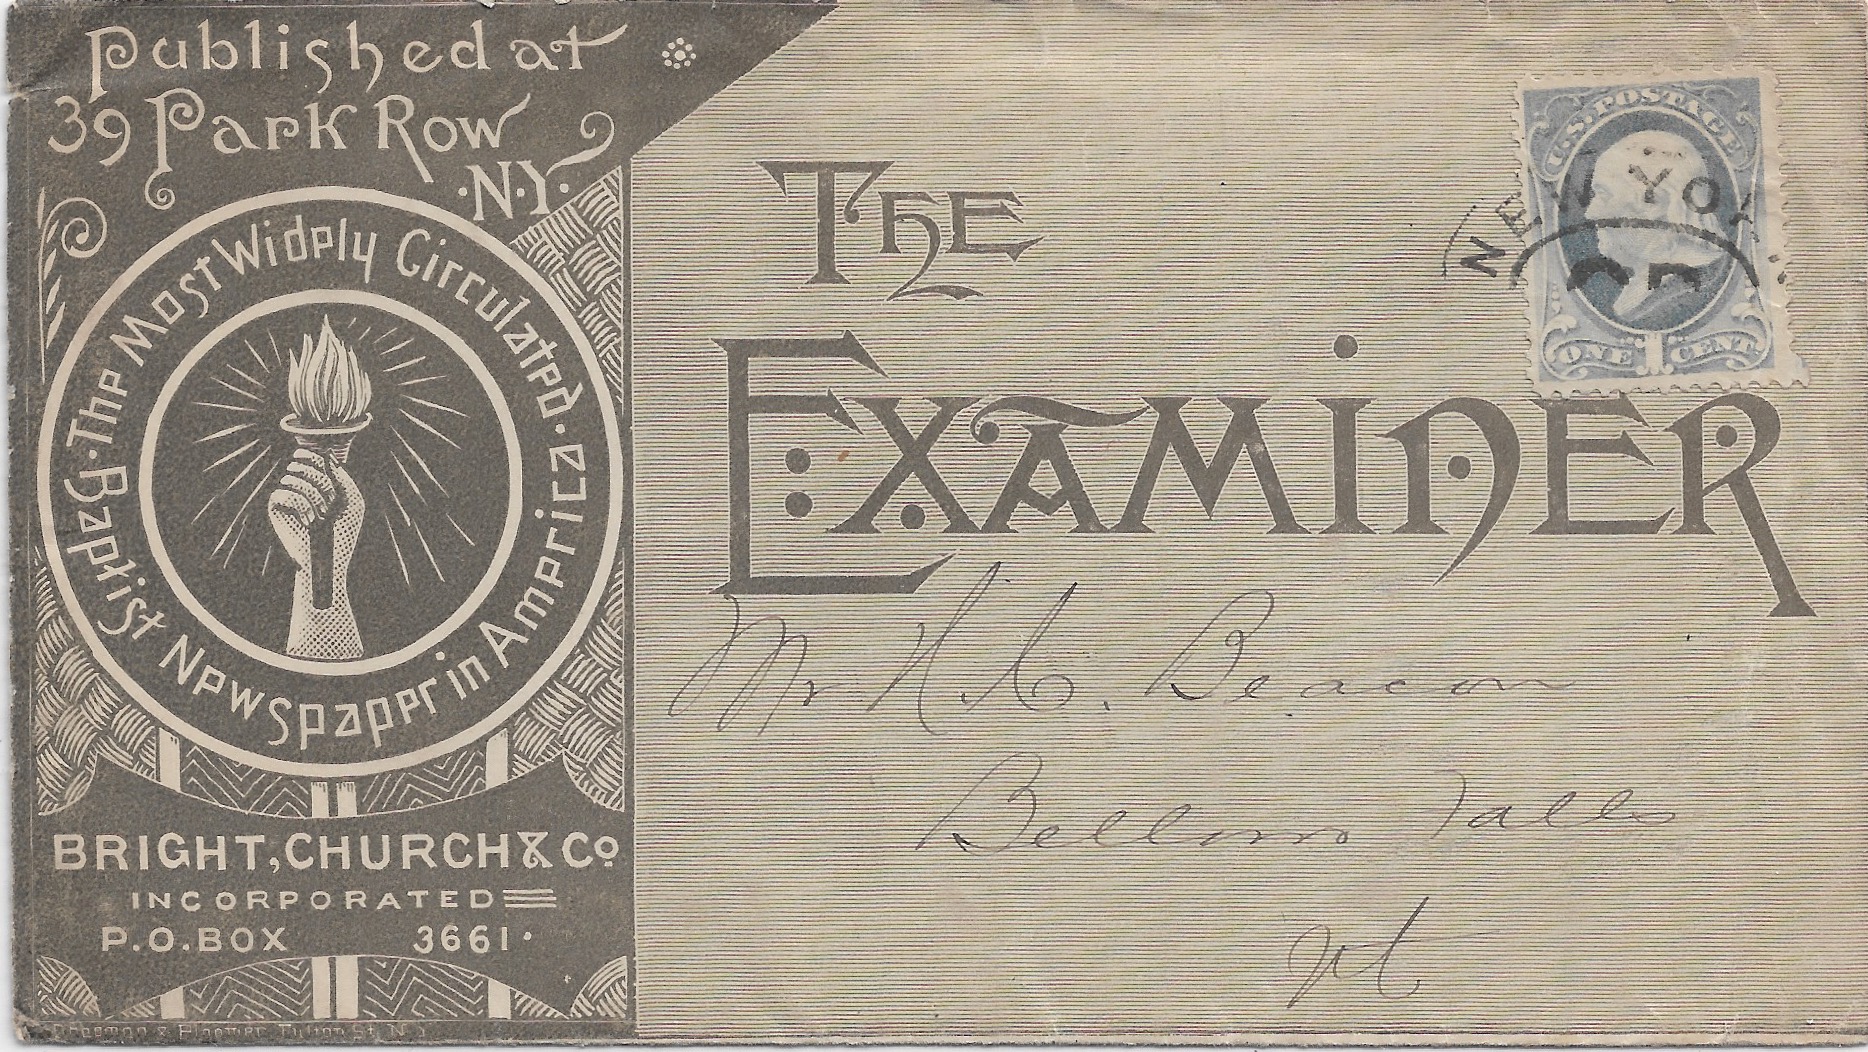 Published at
39 Park Row
·N·Y·
The Most Widely Circulated · Baptist Newspaper in America ·
BRIGHT, CHURCH & Co
INCORPORATED
P.O.BOX 3661·
Fulton St. N.Y.
THE
EXAMINER
U.S. POSTAGE
ONE 1 CENT
NEW YOR
Mr H. C. Beacon
Bellows Falls
Vt